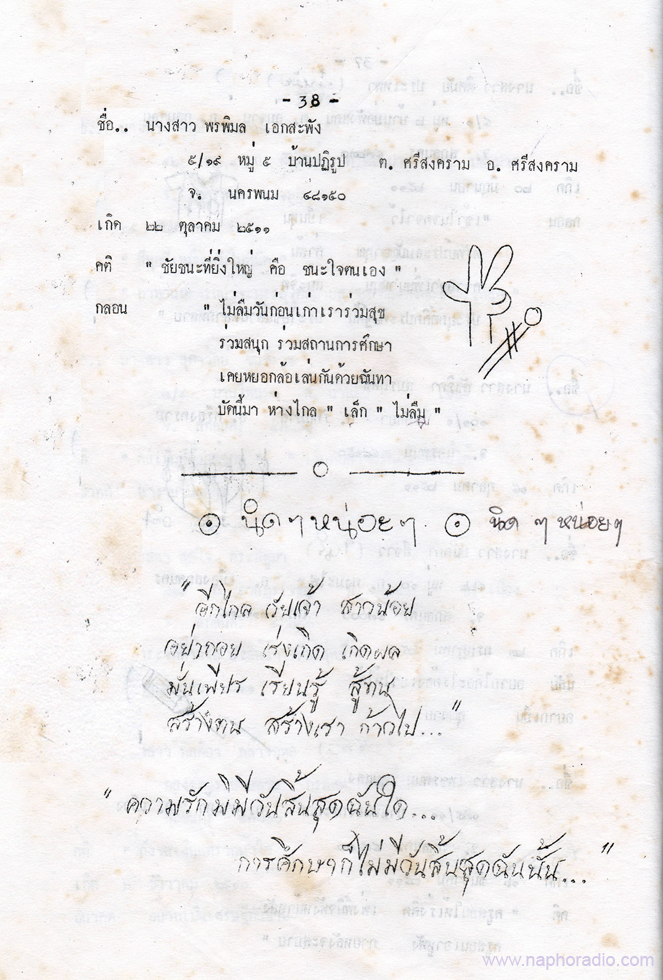 - 38 -
ชื่อ.. นางสาว พรพิมล เอกสะพัง
๕/๑๙ หมู่ ๕ บ้านปฏิรูป ต. ศรีสงคราม อ. ศรีสงคราม
จ. นครพนม ๔๘๑๕๐
เกิด ๒๒ ตุลาคม ๒๕๑๑
คติ " ชัยชนะที่ยิ่งใหญ่ คือ ชนะใจตนเอง "
กลอน " ไม่ลืมวันก่อนเก่าเราร่วมสุข
ร่วมสนุก ร่วมสถานการศึกษา
เคยหยอกล้อเล่นกันด้วยฉันทา
บัดนี้มา ห่างไกล " เล็ก " ไม่ลืม "
นิด ๆ หน่อย ๆ นิด ๆ หน่อยๆ
"อีกไกล วัยเจ้า สาวน้อย
อย่าถอย เร่งเกิด เกิดผล
มั่นเพียร เรียนรู้ สู้ทน
สร้างตน สร้างเรา ก้าวไป..."
"ความรักมิมีวันสิ้นสุดฉันใด...
การศึกษาก็ไม่มีวันสิ้นสุดฉันนั้น..."
www.naphoradio.com